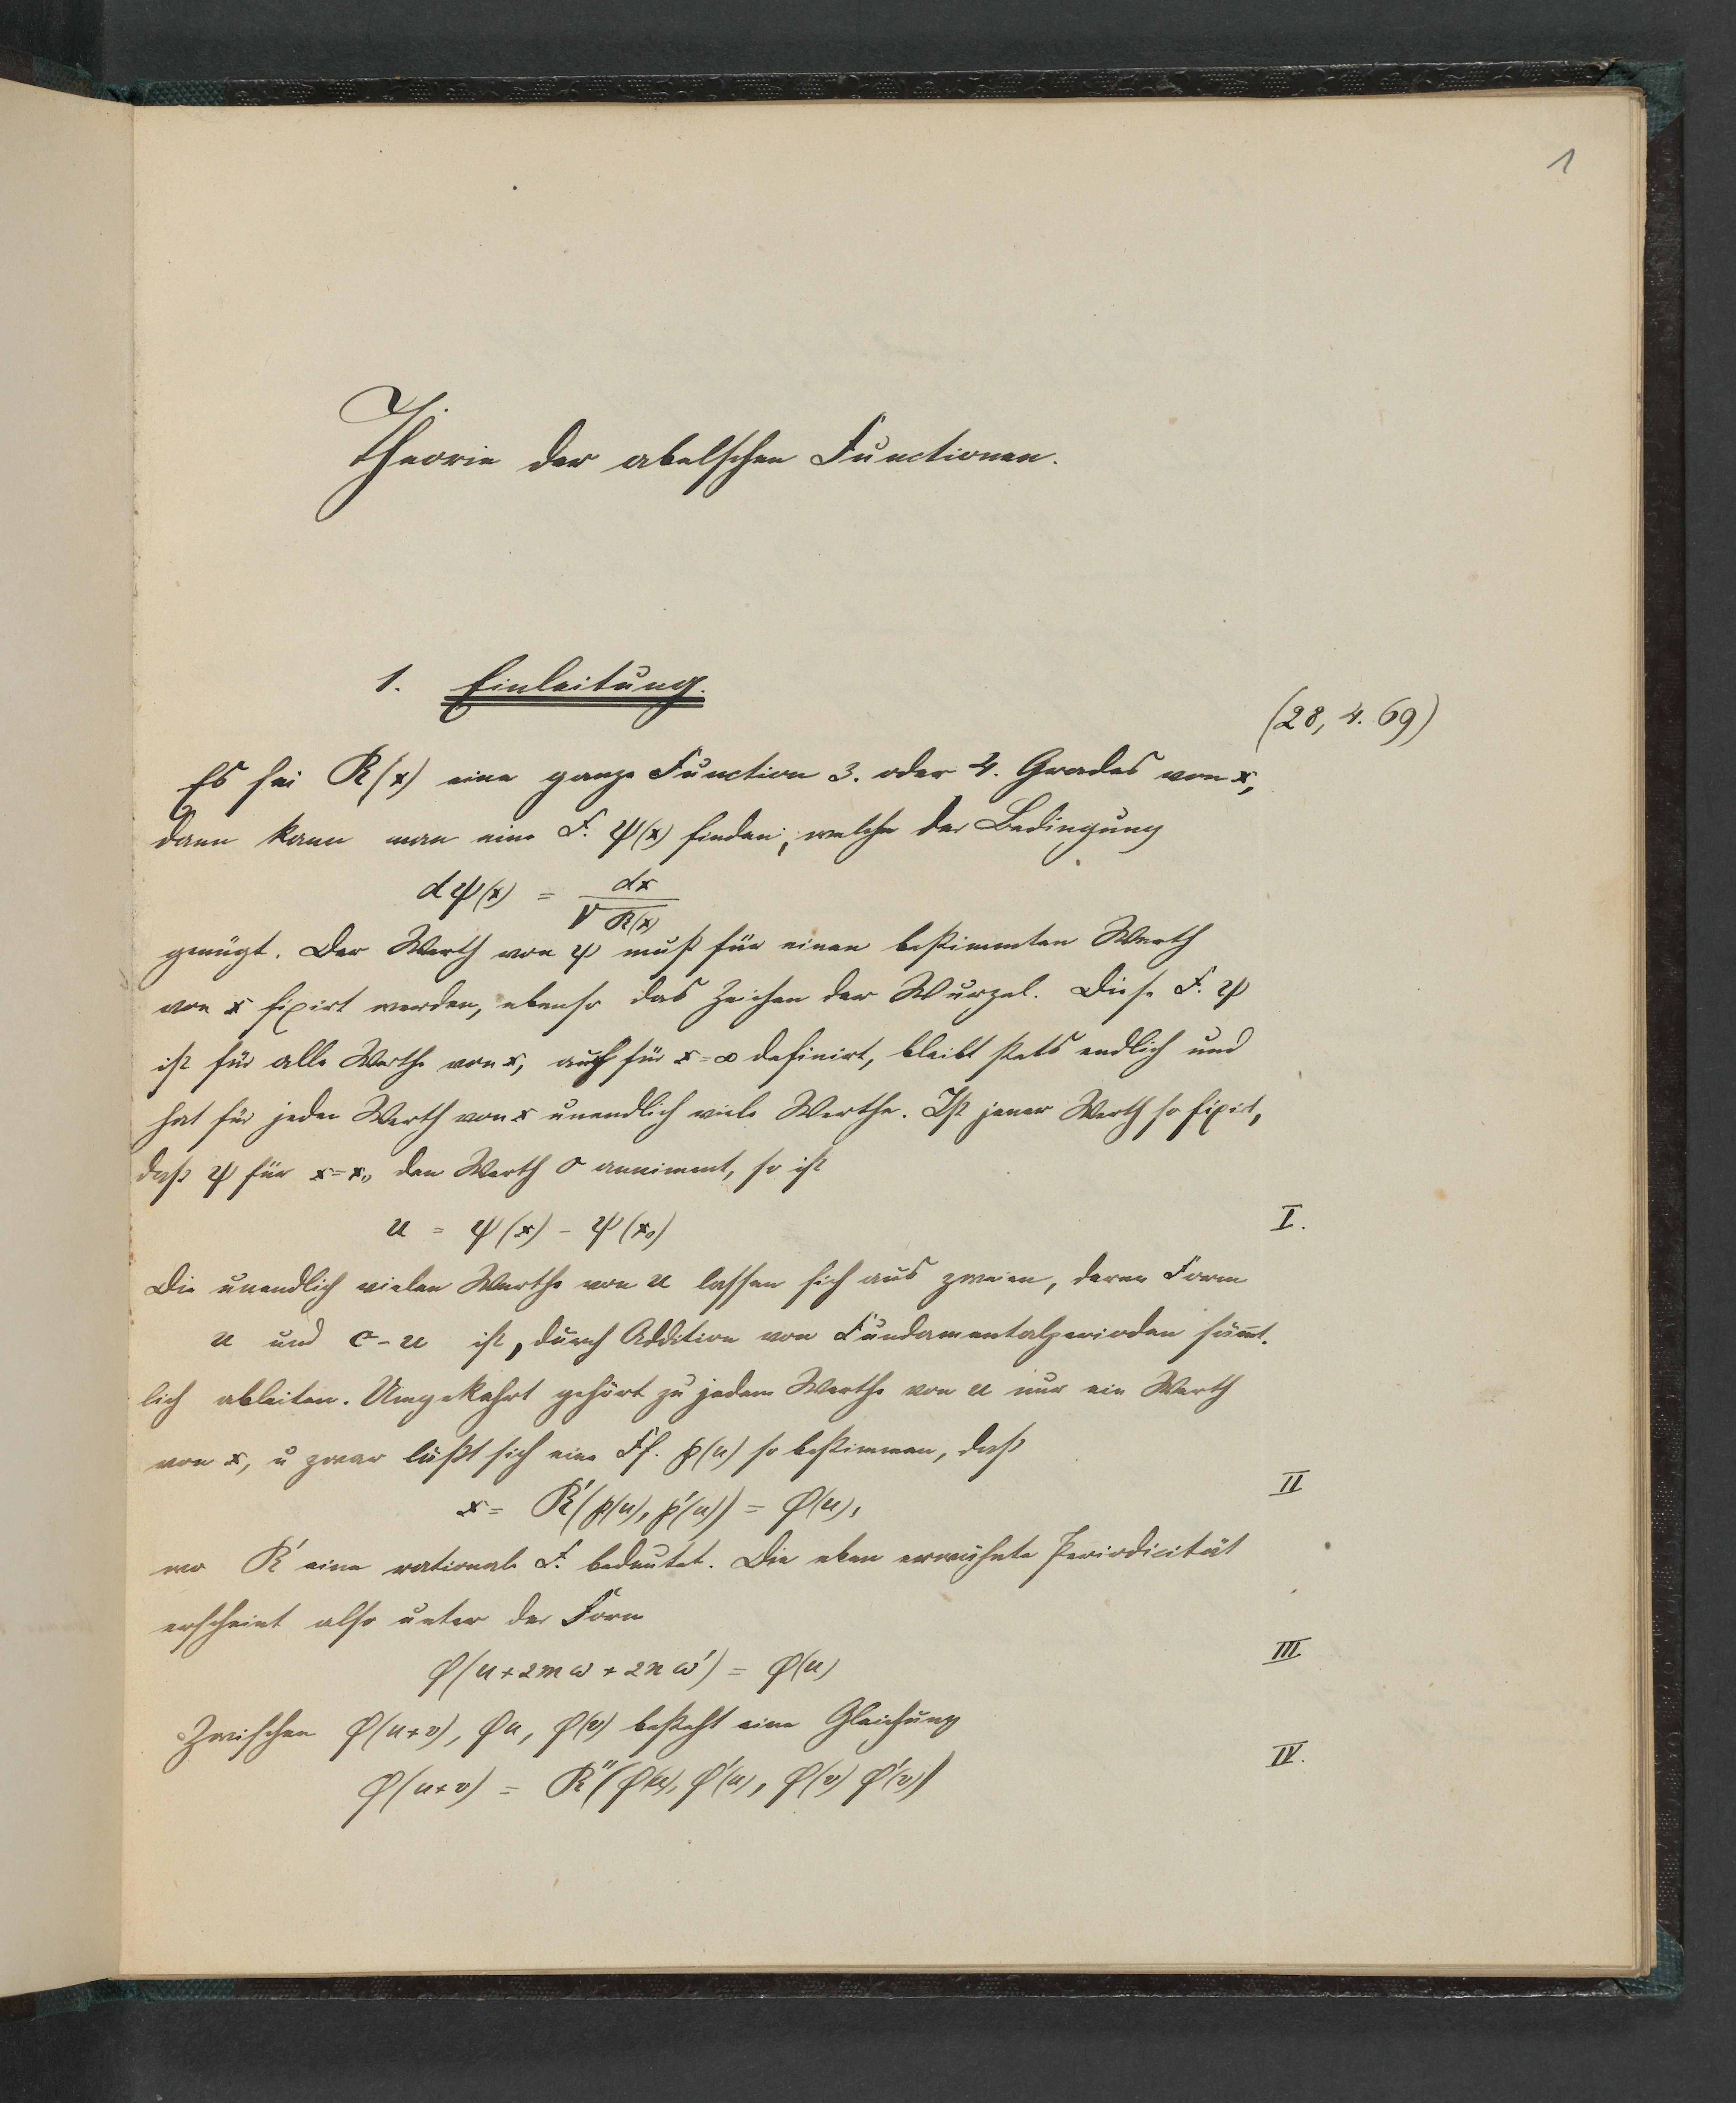 1
Theorie der abelschen Functionen.
1. Einleitung.
(28, 4. 69)
Es sei R(x) eine ganze Function 3. oder 4. Grades von x,
dann kann man eine F. ψ(x) finden, welche der Bedingung
dψ(x) = dx / √R(x)
genügt. Der Werth von ψ muß für einen bestimmten Werth
von x fixirt werden, ebenso das Zeichen der Wurzel. Diese F. ψ
ist für alle Werthe von x, auch für x=∞ definirt, bleibt stets endlich und
hat für jeden Werth von x unendlich viele Werthe. Ist jener Werth so fixirt,
daß ψ für x=x₀ den Werth 0 annimmt, so ist
u = ψ(x) - ψ(x₀) I.
Die unendlich vielen Werthe von u lassen sich aus zweien, deren Form
u und c-u ist, durch Addition von Fundamentalperioden sämmt-
lich ableiten. Umgekehrt gehört zu jedem Werthe von u nur ein Werth
von x, u zwar läßt sich eine Ff. ℘(u) so bestimmen, daß
x = R'(℘(u), ℘'(u)) = φ(u), II
wo R' eine rationale F. bedeutet. Die eben erwähnte Periodicität
erscheint also unter der Form
φ(u+2mω+2nω') = φ(u) III
Zwischen φ(u+v), φu, φ(v) besteht eine Gleichung
φ(u+v) = R''(φ(u), φ'(u), φ(v) φ'(v)) IV.